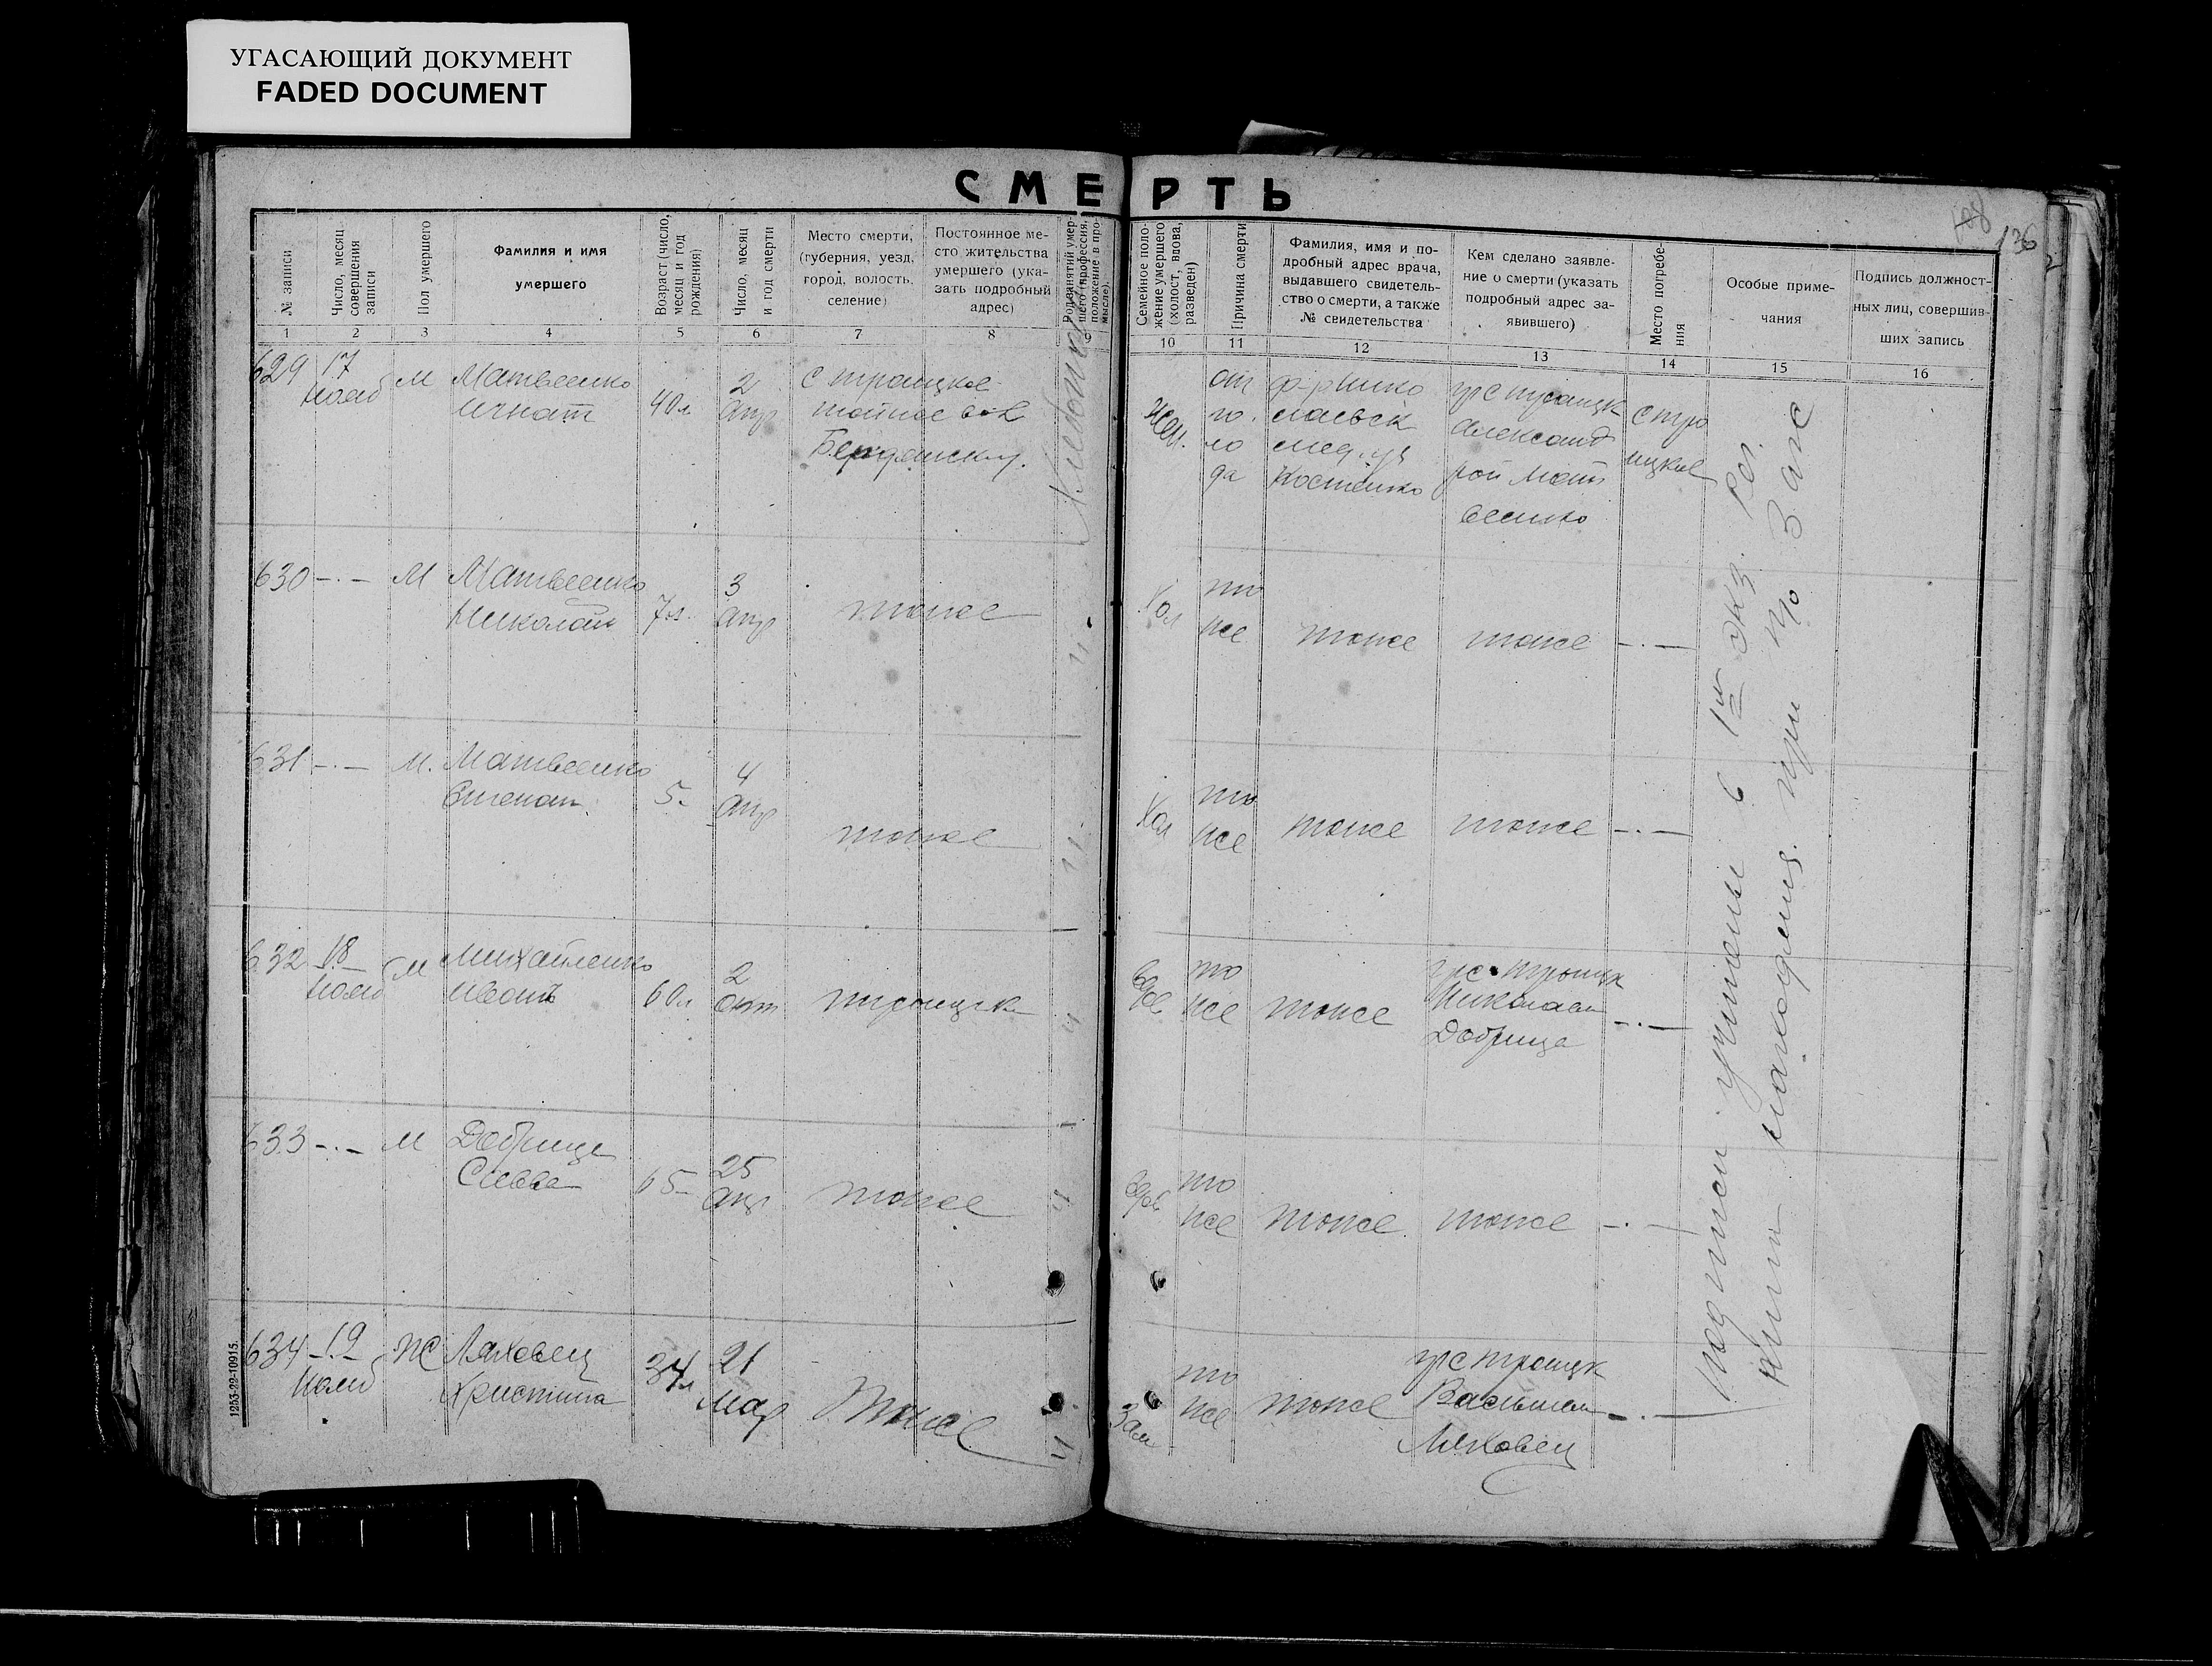 УГАСАЮЩИЙ ДОКУМЕНТ
FADED DOCUMENT
СМЕРТЬ
108
136
№ записи
Число, месяц совершения записи
Пол умершего
Фамилия и имя умершего
Возраст (число, месяц и год рождения)
Число, месяц и год смерти
Место смерти, (губерния, уезд, город, волость, селение)
Постоянное место жительства умершего (указать подробный адрес)
Род занятий умершего (профессия, положение в промысле).
Семейное положение умершего (холост, вдова, разведен)
Причина смерти
Фамилия, имя и подробный адрес врача, выдавшего свидетельство о смерти, а также № свидетельства
Кем сделано заявление о смерти (указать подробный адрес заявившего)
Место погребения
Особые примечания
Подпись должностных лиц, совершивших запись
1 2 3 4 5 6 7 8 9 10 11 12 13 14 15 16
629 17 нояб М Матвеенко Игнат 40л 2 апр с троицкое тойже вол Бердянск у.
Жен. от го ло да ф-р Нико лаевск мед. уч Костенко гр с троицк Александ рой Мат веенко с тро ицкое
630 -·- М Матвеенко Николай 7л. 3 апр тоже
Хол то же тоже тоже -·-
631 -·- М. Матвеенко Степан 5- 4 апр тоже
Хол то же тоже тоже -·-
632 18 нояб М Михайленко Иван 60л 2 окт троицк
вдов то же тоже гр с троицк Николай Добрица -·-
633 -·- М Добрица Савва 65- 25 апр тоже
вдов то же тоже тоже -·-
634 19 нояб Ж Ляховец Христина 34л 21 мар тоже
Зам то же тоже гр с троицк Василий Ляховец -·-
Подписи учинены в 1м экз. Рег.
книги находящ. при Загс
1253-22-10915.